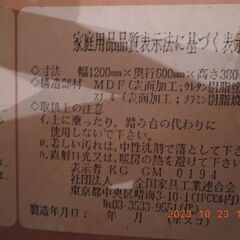 家庭用品品質表示法に基づく表示
◇寸法 幅1200mm×奥行600mm×高さ390
◇構造部材 MDF(表面加工;ウレタン樹脂塗
スチール(表面加工;メラミン樹脂焼
◇取扱上の注意
イ.上に乗ったり、踏み台の代わりに
使用しないで下さい。
ロ.著しい汚れは、中性洗剤で落として下
ハ.直射日光又は、暖房の熱を避けて下さい
表示者 KG GM 0194
社団法人 全国家具工業連合会
東京都中央区晴海3-10-1(JFCビル内)
Tel 03-3533-9551(代)
製造年月日: 年 月
2023/10/23